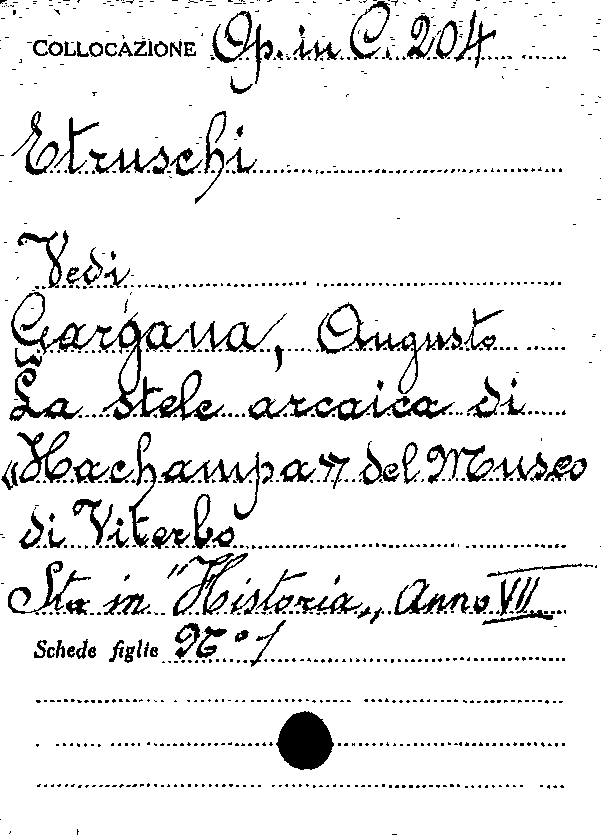 COLLOCAZIONE Op. in C. 204
Etruschi
Vedi
Gargana, Augusto
La stele arcaica di
«Hachampa» del Museo
di Viterbo
Sta in "Historia„ Anno VII
Schede figlie N° 1